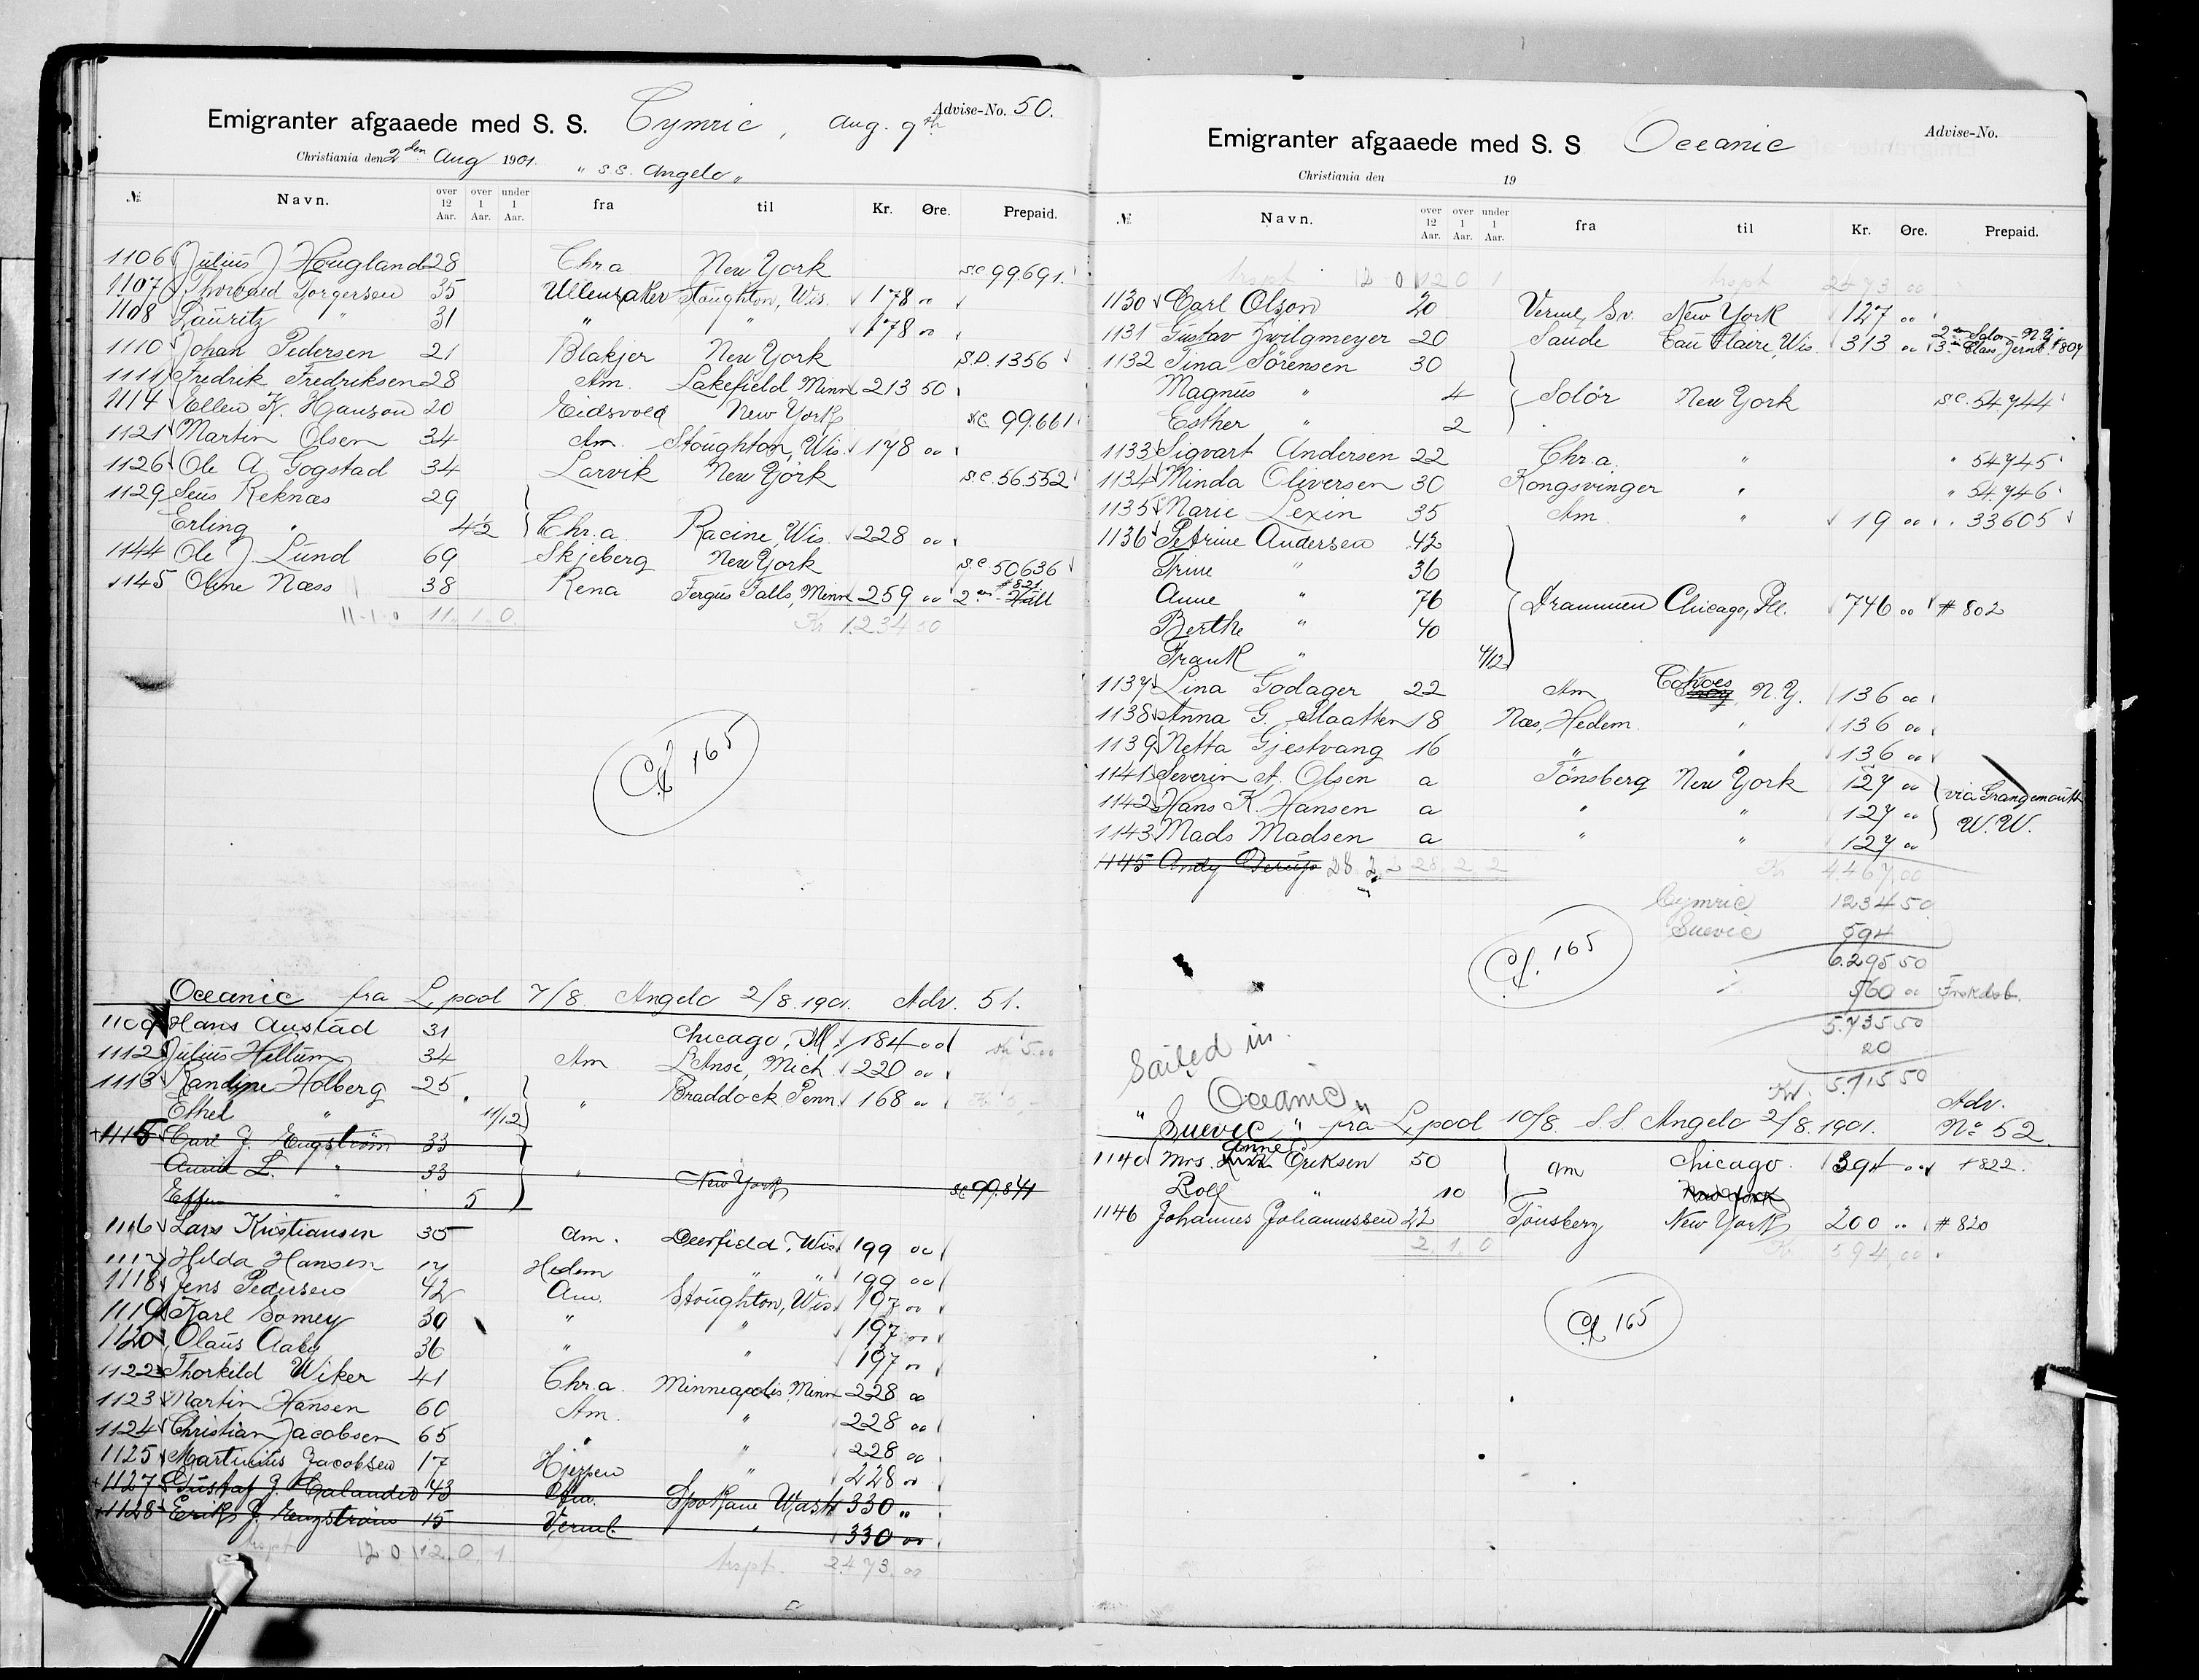 Advise-No. 50.
Emigranter afgaaede med S. S. Cymric, Aug. 9th
Christiania den 2den Aug 1901. " S.S. Angelo "
№ Navn. over 12 Aar. over 1 Aar. under 1 Aar. fra til Kr. Øre. Prepaid.
1106 Julius J Hougland 28 Chr.a New York s.c. 99.691.
1107 Thorvald Torgersen 35 Ullensaker Stoughton, Wis. 178 00
1108 Lauritz " 31 " " 178 00
1110 Johan Pedersen 21 Blakjer New York S.D. 1356
1111 Fredrik Fredriksen 28 Am. Lakefield Minn 213 50
1114 Ellen K. Hanson 20 Eidsvold New York s.c. 99.661
1121 Martin Olsen 34 Am. Stoughton, Wis. 178 00
1126 Ole A. Gogstad 34 Larvik New York s.c. 56.552
1129 Seus Reknæs 29
Erling " 4½ } Chr.a. Racine, Wis. 228 00
1144 Ole J. Lund 69 Skjeberg New York s.c. 50636
1145 Oline Næss 38 Rena Fergus Falls, Minn 259 00 2den # 821
11-1-0 11. 1. 0. Kr 1.234 50
Cf 165
Oceanic fra L.pool 7/8. Angelo 2/8.1901. Adv. 51.
1109 Hans Austad 31 Chicago, Ill. 184 00
1112 Julius Hellum 34 Am L'Anse, Mich. 220 00
1113 Randine Holberg 25 " Braddock Penn. 168 00
Ethel " 11/12
1115 Carl J. Engström 33
L. " 33 " New York s.c. 99.841
" 5
1116 Lars Kristiansen 35 Am. Deerfield, Wis. 199 00
1117 Hilda Hansen 17 Hedem " " 199 00
1118 Jens Pedersen 42 Am. Stoughton, Wis. 197 00
1119 Karl Somey 30 " " 197 00
1120 Olaus Aaby 36 " " 197 00
1122 Thorkild Wiker 41 Chr.a. Minneapolis, Minn 228 00
1123 Martin Hansen 60 Am. " 228 00
1124 Christian Jacobsen 65 " " 228 00
1125 Martinius Jacobsen 17 Hjerpen " 228 00
1127 Gustaf J. 43 Am. Spokane Wash 330 "
1128 Erik J. Engström 15 Verml. " 330 00
trspt 12 0 1 12. 0. 1 trspt. 2.473. 00
Advise-No.
Emigranter afgaaede med S. S Oceanic
Christiania den 19
№ Navn. over 12 Aar. over 1 Aar. under 1 Aar. fra til Kr. Øre. Prepaid.
trspt 12 0 1 12 0 1 trspt 2473 00
1130 Carl Olson 20 Verml, Sv. New York 127 00
1131 Gustav Zwilgmeyer 20 Saude Eau Claire, Wis. 313 00 2den Salon N.Y. 3. Class Jernb # 807
1132 Tina Sörensen 30
Magnus " 4 } Solör New York s.c. 54744
Esther " 2
1133 Sigvart Andersen 22 Chr.a. " " 54745
1134 Minda Oliversen 30 Kongsvinger " " 54746
1135 Marie Lexin 35 Am. " 19 00 " 33605
1136 Petrine Andersen 42
Trine " 36
Anne " 76 } Drammen Chicago, Ill. 746 00 # 802
Berthe " 40
Frank " 4/12
1137 Lina Godager 22 Am Cohoes Troy, N.Y. 136 00
1138 Anna G. Slaatten 18 Næs, Hedem. " 136 00
1139 Netta Gjestvang 16 " " 136 00
1141 Severin A. Olsen a Tönsberg New York 127 00 } via Grangemouth
1142 Hans K. Hansen a " " 127 00 W.W.
1143 Mads Madsen a " " 127 00
1145 Andy 28. 2. 2 28. 2. 2 Kr 4467,00
Cymric 1234 50
Suevic 594
6.295 50
560 00
5.735 50
20
Kr. 5.715 50
Cf. 165
Sailed in
Oceanic
" Suevic " fra L.pool 10/8. S.S. Angelo 2/8.1901. Adv. No 52.
1140 Mrs. Anne Eriksen 50 } Am Chicago. 394 00 # 822.
Rolf " 10 New York
1146 Johannes Johannessen 22 Tönsberg New York 200 " # 820
2. 1. 0 Kr. 594,00
Cf. 165